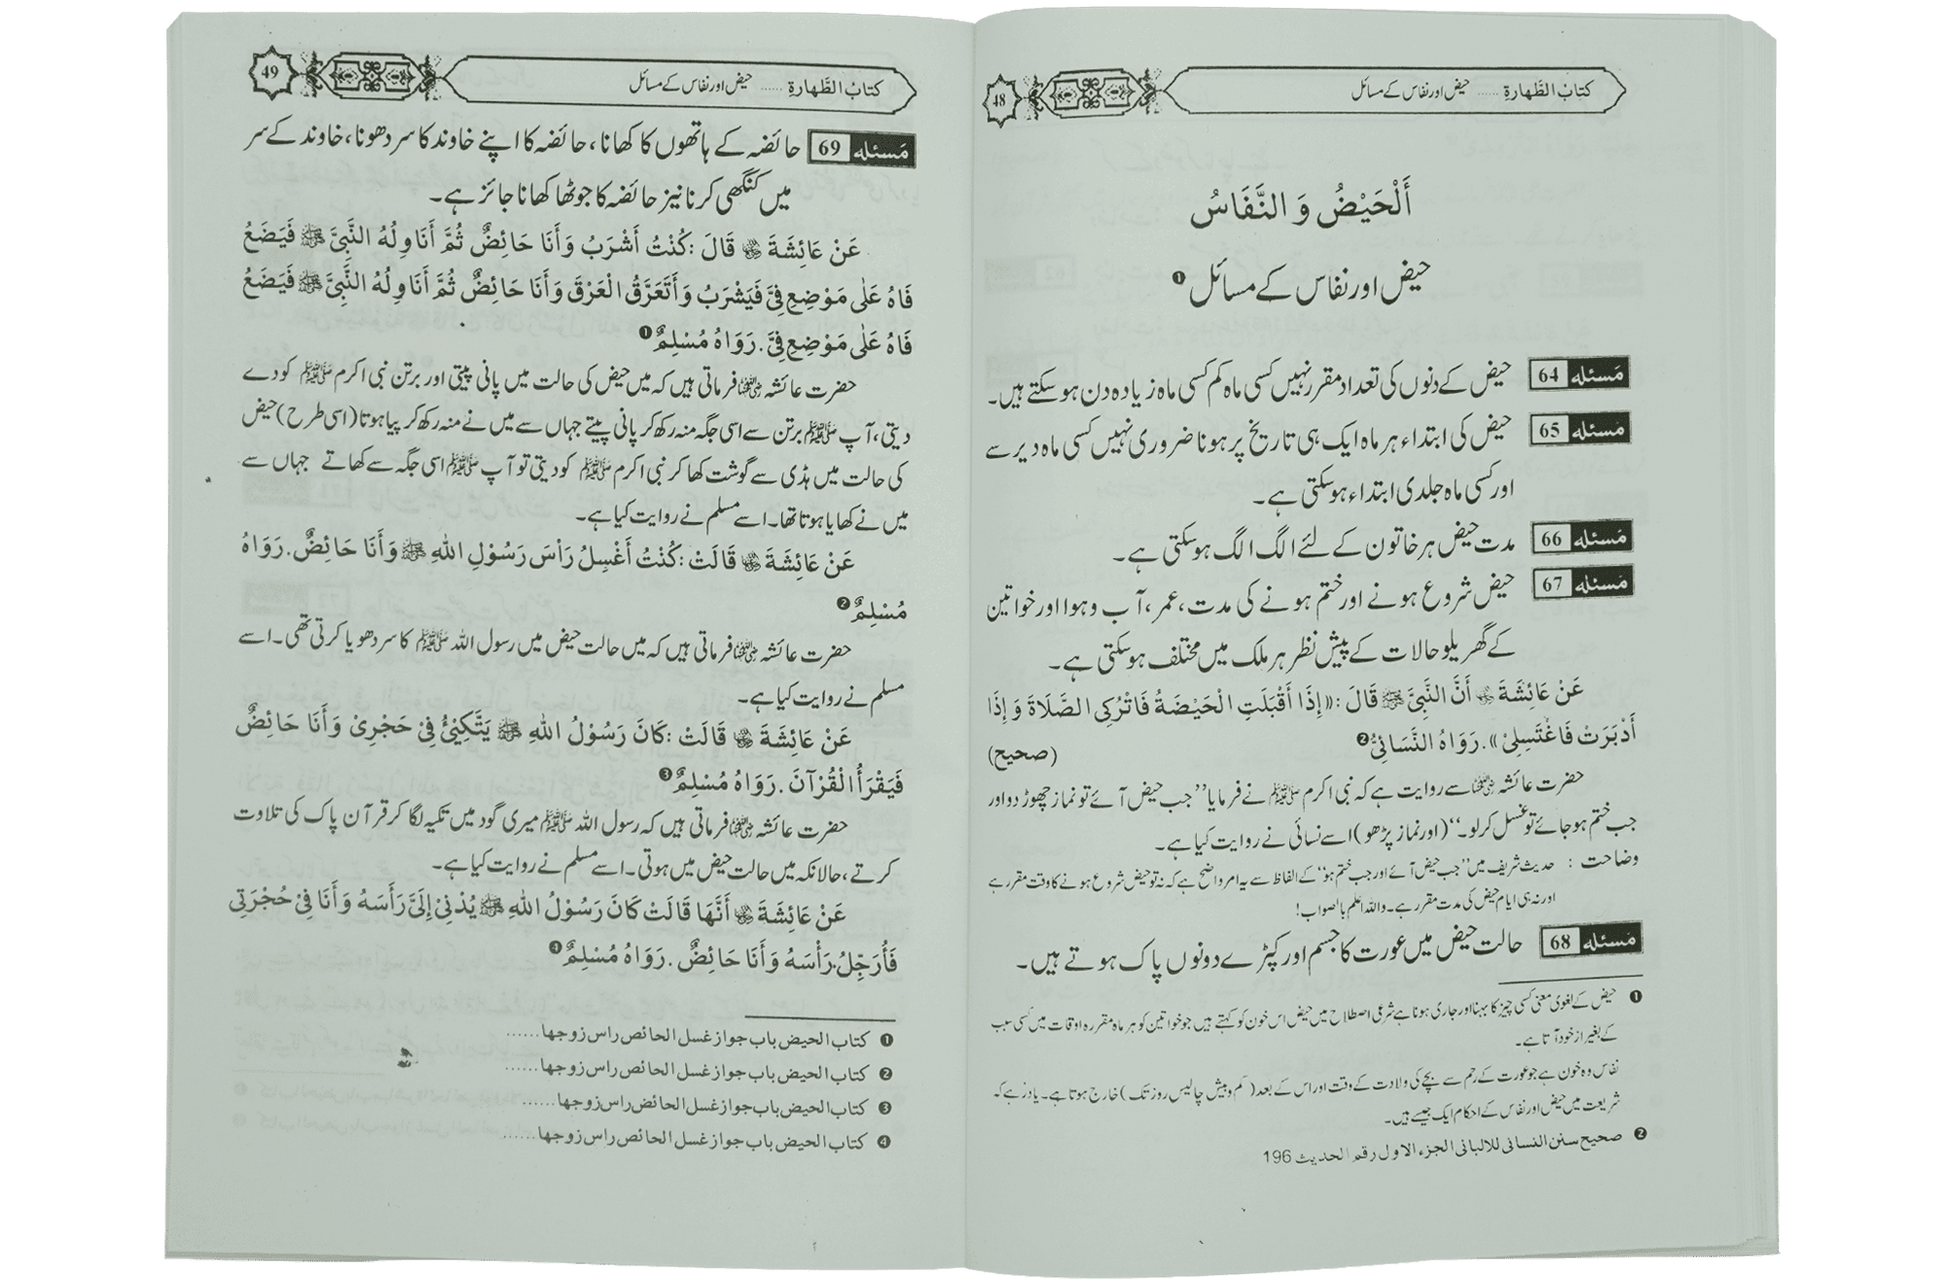 48
كتابُ الطَّهارةِ ...... حیض اور نفاس کے مسائل
أَلْحَيْضُ وَ النَّفَاسُ
حیض اور نفاس کے مسائل ❶
مَسئله 64 حیض کے دنوں کی تعداد مقرر نہیں کسی ماہ کم کسی ماہ زیادہ دن ہوسکتے ہیں۔
مَسئله 65 حیض کی ابتداء ہر ماہ ایک ہی تاریخ پر ہونا ضروری نہیں کسی ماہ دیر سے
اور کسی ماہ جلدی ابتداء ہوسکتی ہے۔
مَسئله 66 مدت حیض ہر خاتون کے لئے الگ الگ ہوسکتی ہے۔
مَسئله 67 حیض شروع ہونے اور ختم ہونے کی مدت، عمر، آب و ہوا اور خواتین
کے گھریلو حالات کے پیش نظر ہر ملک میں مختلف ہوسکتی ہے۔
عَنْ عَائِشَةَ ؓ أَنَّ النَّبِىَّ ﷺ قَالَ :((إِذَا أَقْبَلَتِ الْحَيْضَةُ فَاتْرُكِى الصَّلَاةَ وَ إِذَا
أَدْبَرَتْ فَاغْتَسِلِىْ)). رَوَاهُ النَّسَائِىُّ ❷ (صحيح)
حضرت عائشہ ؓ سے روایت ہے کہ نبی اکرم ﷺ نے فرمایا ’’جب حیض آئے تو نماز چھوڑ دو اور
جب ختم ہوجائے تو غسل کرلو۔‘‘ (اور نماز پڑھو) اسے نسائی نے روایت کیا ہے۔
وضاحت : حدیث شریف میں ’’جب حیض آئے اور جب ختم ہو‘‘ کے الفاظ سے یہ امر واضح ہے کہ نہ تو حیض شروع ہونے کا وقت مقرر ہے
اور نہ ہی ایام حیض کی مدت مقرر ہے۔ واللہ اعلم بالصواب!
مَسئله 68 حالت حیض میں عورت کا جسم اور کپڑے دونوں پاک ہوتے ہیں۔
❶ حیض کے لغوی معنی کسی چیز کا بہنا اور جاری ہونا ہے شرعی اصطلاح میں حیض اس خون کو کہتے ہیں جو خواتین کو ہر ماہ مقررہ اوقات میں کسی سبب
کے بغیر از خود آتا ہے۔
نفاس وہ خون ہے جو عورت کے رحم سے بچے کی ولادت کے وقت اور اس کے بعد (کم و بیش چالیس روز تک) خارج ہوتا ہے۔ یاد رہے کہ
شریعت میں حیض اور نفاس کے احکام ایک جیسے ہیں۔
❷ صحيح سنن النسائى للالبانى الجزء الاول رقم الحديث 196
49
كتابُ الطَّهارةِ ...... حیض اور نفاس کے مسائل
مَسئله 69 حائضہ کے ہاتھوں کا کھانا، حائضہ کا اپنے خاوند کا سر دھونا، خاوند کے سر
میں کنگھی کرنا نیز حائضہ کا جوٹھا کھانا جائز ہے۔
عَنْ عَائِشَةَ ؓ قَالَ :كُنْتُ أَشْرَبُ وَأَنَا حَائِضٌ ثُمَّ أَنَاوِلُهُ النَّبِىَّ ﷺ فَيَضَعُ
فَاهُ عَلٰى مَوْضِعِ فِىَّ فَيَشْرَبُ وَأَتَعَرَّقُ الْعَرْقَ وَأَنَا حَائِضٌ ثُمَّ أَنَاوِلُهُ النَّبِىَّ ﷺ فَيَضَعُ
فَاهُ عَلٰى مَوْضِعِ فِىَّ. رَوَاهُ مُسْلِمٌ ❶
حضرت عائشہ ؓ فرماتی ہیں کہ میں حیض کی حالت میں پانی پیتی اور برتن نبی اکرم ﷺ کو دے
دیتی، آپ ﷺ برتن سے اسی جگہ منہ رکھ کر پانی پیتے جہاں سے میں نے منہ رکھ کر پیا ہوتا (اسی طرح) حیض
کی حالت میں ہڈی سے گوشت کھا کر نبی اکرم ﷺ کو دیتی تو آپ ﷺ اسی جگہ سے کھاتے جہاں سے
میں نے کھایا ہوتا تھا۔ اسے مسلم نے روایت کیا ہے۔
عَنْ عَائِشَةَ ؓ قَالَتْ :كُنْتُ أَغْسِلُ رَاْسَ رَسُوْلِ اللهِ ﷺ وَأَنَا حَائِضٌ. رَوَاهُ
مُسْلِمٌ ❷
حضرت عائشہ ؓ فرماتی ہیں کہ میں حالت حیض میں رسول اللہ ﷺ کا سر دھویا کرتی تھی۔ اسے
مسلم نے روایت کیا ہے۔
عَنْ عَائِشَةَ ؓ قَالَتْ :كَانَ رَسُوْلُ اللهِ ﷺ يَتَّكِىْٔ فِىْ حَجْرِىْ وَأَنَا حَائِضٌ
فَيَقْرَأُ الْقُرْآنَ. رَوَاهُ مُسْلِمٌ ❸
حضرت عائشہ ؓ فرماتی ہیں کہ رسول اللہ ﷺ میری گود میں تکیہ لگا کر قرآن پاک کی تلاوت
کرتے، حالانکہ میں حالت حیض میں ہوتی۔ اسے مسلم نے روایت کیا ہے۔
عَنْ عَائِشَةَ ؓ أَنَّهَا قَالَتْ كَانَ رَسُوْلُ اللهِ ﷺ يُدْنِىْ إِلَىَّ رَأسَهُ وَأَنَا فِىْ حُجْرَتِى
فَأُرَجِّلُ رَأْسَهُ وَأَنَا حَائِضٌ. رَوَاهُ مُسْلِمٌ ❹
❶ كتاب الحيض باب جواز غسل الحائص راس زوجها......
❷ كتاب الحيض باب جواز غسل الحائص راس زوجها......
❸ كتاب الحيض باب جواز غسل الحائض راس زوجها......
❹ كتاب الحيض باب جواز غسل الحائص راس زوجها......